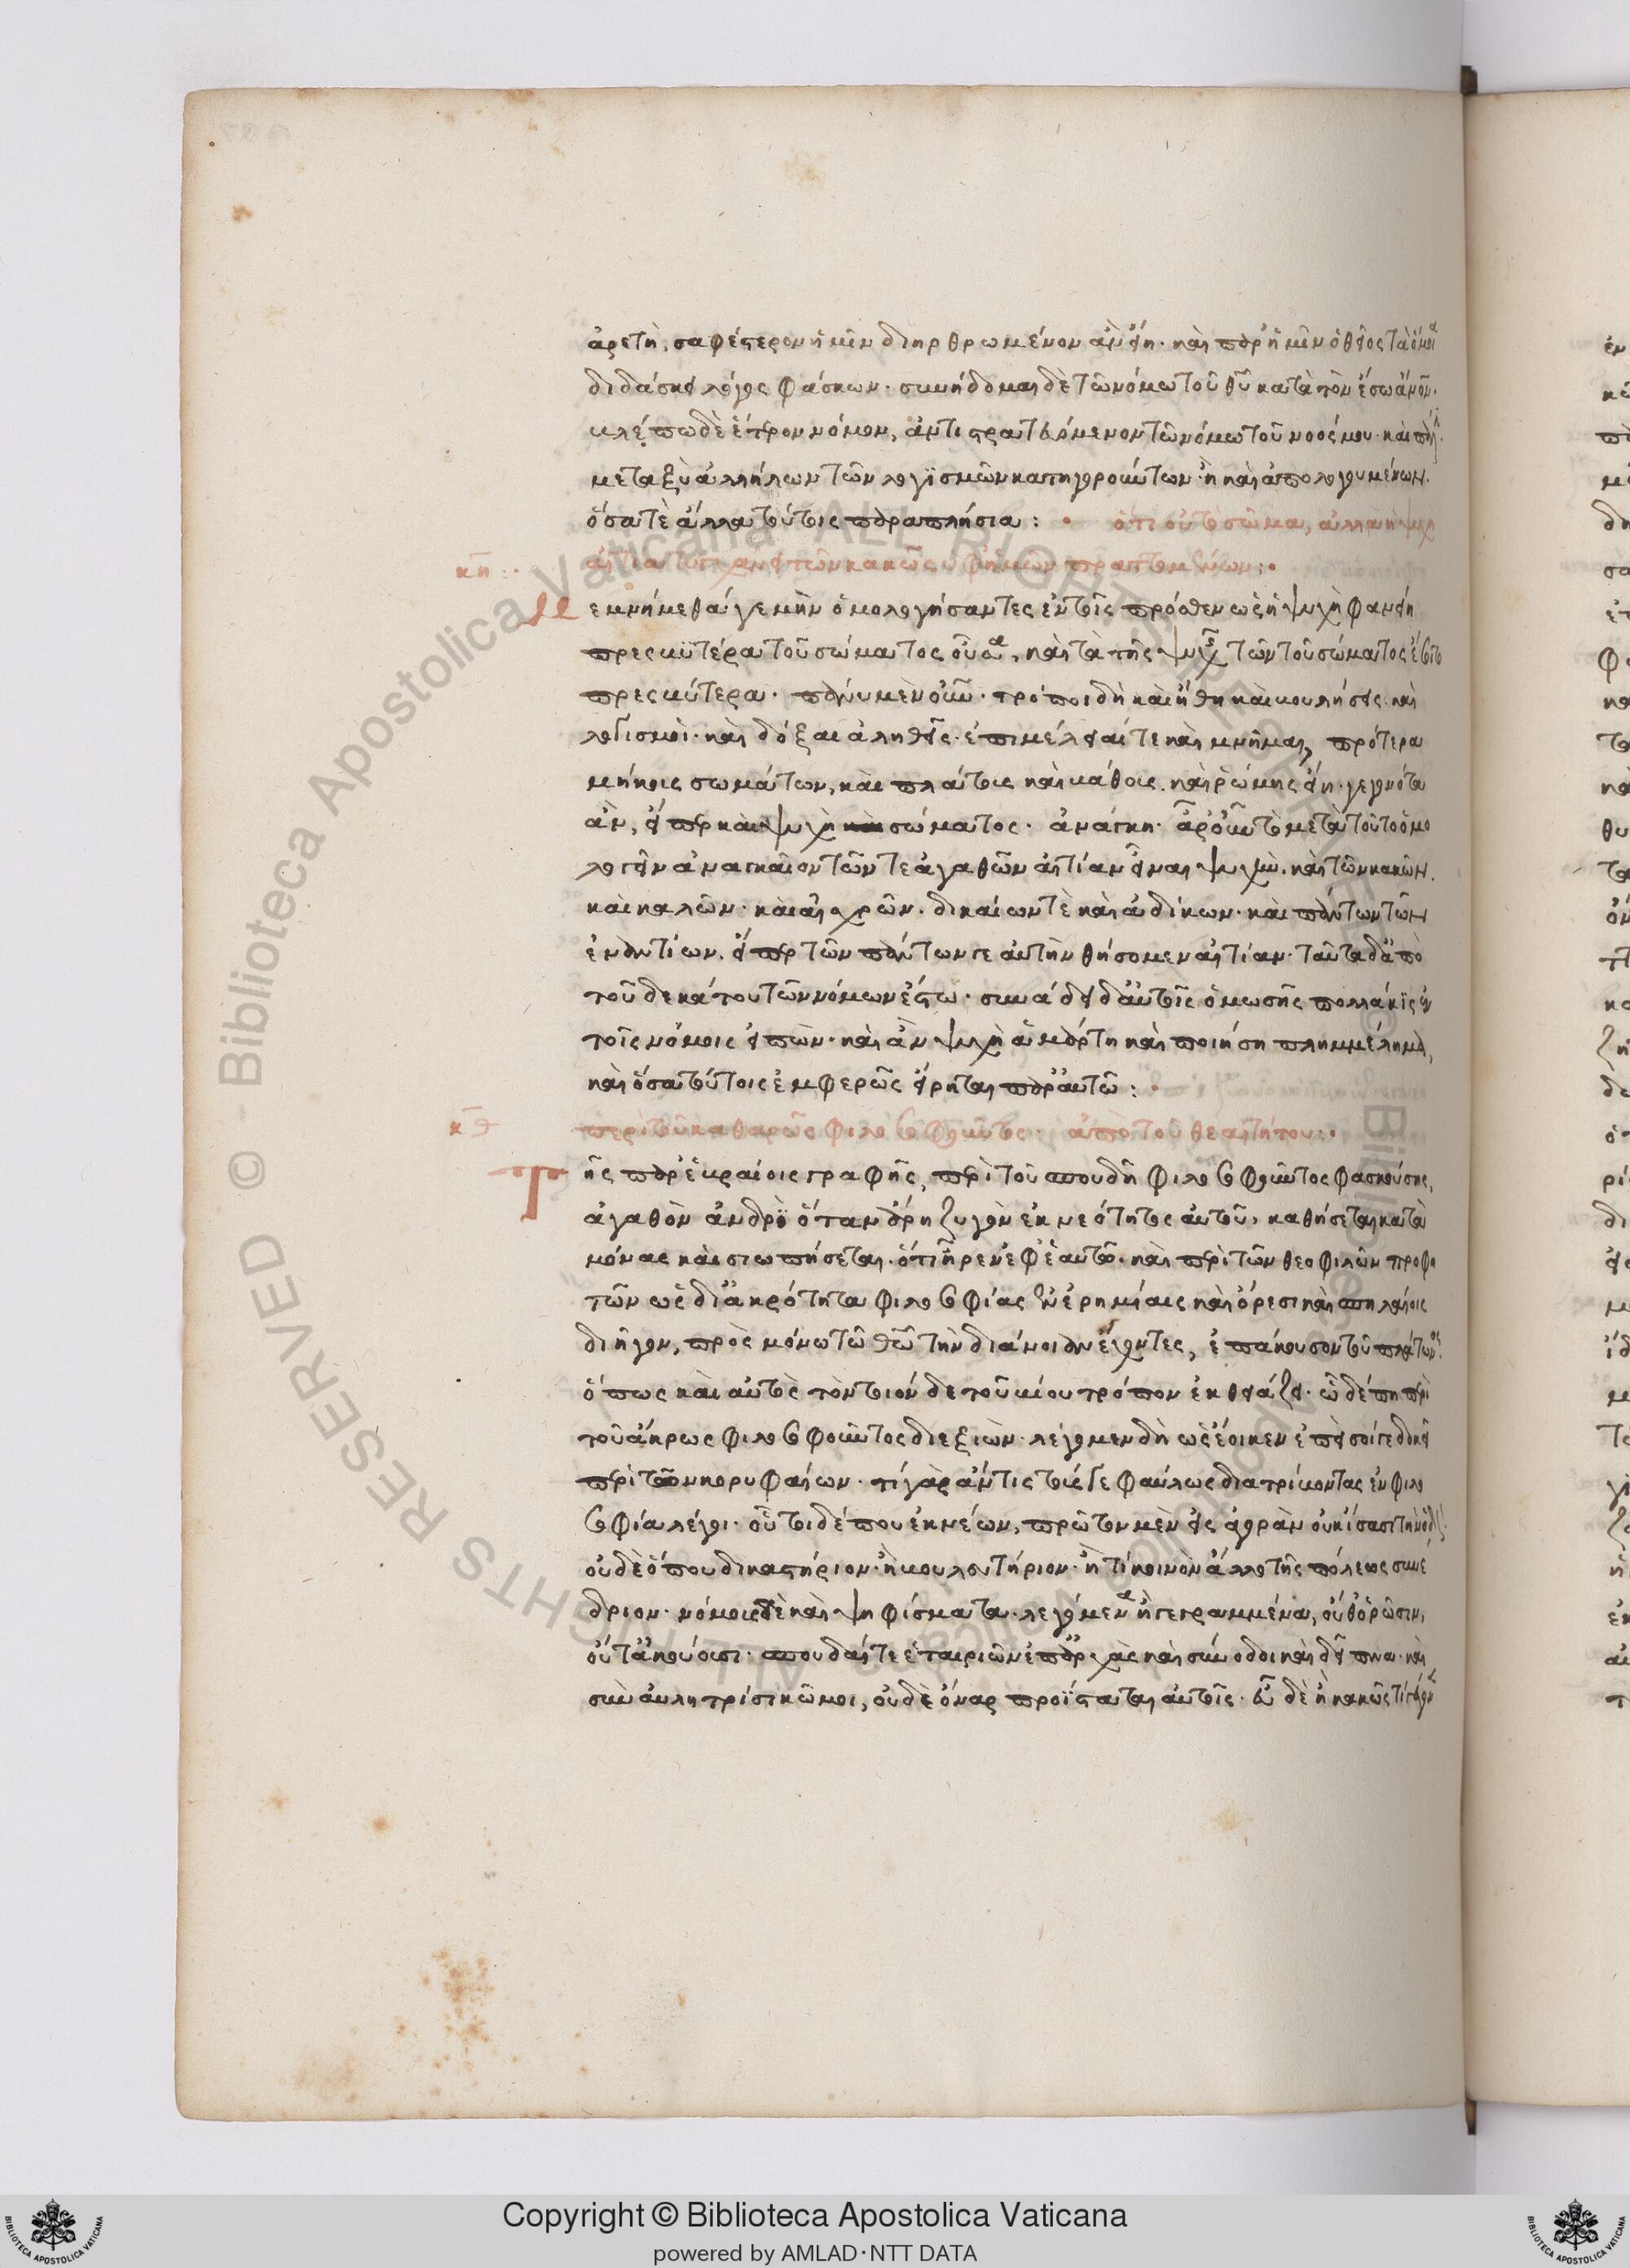 ἀρετὴ, σαφέστερον ἡμῖν διηρθρωμένον ἂν εἴη· καὶ παρ' ἡμῖν ὁ θεῖος τὰ ὅμοια
διδάσκει λόγος φάσκων· συνήδομαι δὲ τῶ νόμω τοῦ θυ κατὰ τὸν ἔσω ἄνον·
βλέπω δὲ ἕτερον νόμον, ἀντιστρατευόμενον τῶ νόμω τοῦ νοός μου· καὶ πάλιν·
μεταξὺ ἀλλήλων τῶν λογϊσμῶν κατηγορούντων· ἢ καὶ ἀπολογουμένων.
ὅσα τὲ ἄλλα τούτοις παραπλήσια: ὅτι οὐ τὸ σῶμα, ἀλλὰ ἡ ψυχὴ
κη: αἰτία τυγχάνει τῶν κακῶς ὑφ' ἡμῶν πραττομένων:
Μεμνήμεθά γε μὴν ὁμολογήσαντες ἐν τοῖς πρόσθεν ὡς ἡ ψυχὴ φανείη
πρεσβϋτέρα τοῦ σώματος οὖσα, καὶ τὰ τῆς ψυχῆς τῶν τοῦ σώματος ἔσοιτο
πρεσβύτερα· πάνυ μὲν οὖν· τρόποι δὴ καὶ ἤθη καὶ βουλήσεις· καὶ
λογισμοὶ· καὶ δόξαι ἀληθεῖς· ἐπιμέλειαί τε καὶ μνῆμαι, πρότερα
μήκοις σωμάτων, καὶ πλάτοις καὶ βάθοις. καὶ ῥώμης εἴη· γεγονότα
ἂν, εἴπερ καὶ ψυχὴ σώματος· ἀνάγκη· ἆρ' οὖν τὸ μετὰ τοῦτο ὁμο
λογεῖν ἀναγκαῖον τῶν τε ἀγαθῶν αἰτίαν εἶναι ψυχὴν. καὶ τῶν κακῶν.
καὶ καλῶν· καὶ αἰσχρῶν. δικαίων τὲ καὶ ἀδίκων· καὶ πάντων τῶν
ἐναντίων. εἴπερ τῶν πάντων γε αὐτὴν θήσομεν αἰτίαν· ταῦτα δ' ἀπὸ
τοῦ δεκάτου τῶν νόμων ἔστω· συνάδει δ' αὐτοῖς ὁ μωσῆς πολλάκϊς ἐν
τοῖς νόμοις εἰπὼν· καὶ ἂν ψυχὴ ἁμάρτη καὶ ποιήση πλημμέλημα,
καὶ ὅσα τούτοις ἐμφερῶς εἴρηται παρ' αὐτῶ:
κθ περὶ τοῦ καθαρῶς φιλοσοφοῦντος· ἀπὸ τοῦ θεαιτήτου:
Τῆς παρ' ἑβραίοις γραφῆς, περὶ τοῦ σπουδῆ φιλοσοφοῦντος φασκούσης,
ἀγαθὸν ἀνδρὶ ὅταν ἄρη ζυγὸν ἐκ νεότητος αὐτοῦ, καθήσεται κατὰ
μόνας καὶ σιωπήσεται. ὅτι ἦρεν ἐφ' ἑαυτῶ. καὶ περὶ τῶν θεοφιλῶν προφη
τῶν ὡς δι' ἀκρότητα φιλοσοφίας ἐν ἐρημίαις καὶ ὄρεσι καὶ σπηλαίοις
διῆγον, πρὸς μόνω τῶ θῶ τὴν διάνοιαν ἔχοντες, ἐπάκουσον τοῦ πλάτωνος
ὅπως καὶ αὐτὸς τὸν τοιόνδε τοῦ βίου τρόπον ἐκθειάζει. ὧδέ πη περὶ
τοῦ ἄκρως φιλοσοφοῦντος διεξιὼν· λέγωμεν δὴ ὡς ἔοικεν ἐπεὶ σοί γε δοκεῖ
περὶ τῶν κορυφαίων· τί γὰρ ἄν τις τούς γε φαύλως διατρίβοντας ἐν φιλο
σοφία λέγοι· οὗτοι δέ που ἐκ νέων, πρῶτον μὲν εἰς ἀγορὰν οὐκ ἴσασι τὴν ὁδὸν.
οὐδὲ ὅπου δικαστήριον· ἢ βουλευτήριον· ἤ τι κοινὸν ἄλλο τῆς πόλεως συνέ
δριον· νόμους δὲ καὶ ψηφίσματα· λεγόμενα ἢ γεγραμμένα, οὔθ' ὁρῶσιν,
οὔτ' ἀκούουσι· σπουδαί τε ἑταιριῶν ἐπ' ἀρχὰς καὶ σύνοδοι καὶ δεῖπνα· καὶ
σὺν αὐλητρίσι κῶμοι, οὐδὲ ὄναρ προΐσταται αὐτοῖς· εὖ δὲ ἢ κακῶς τί γέγονεν